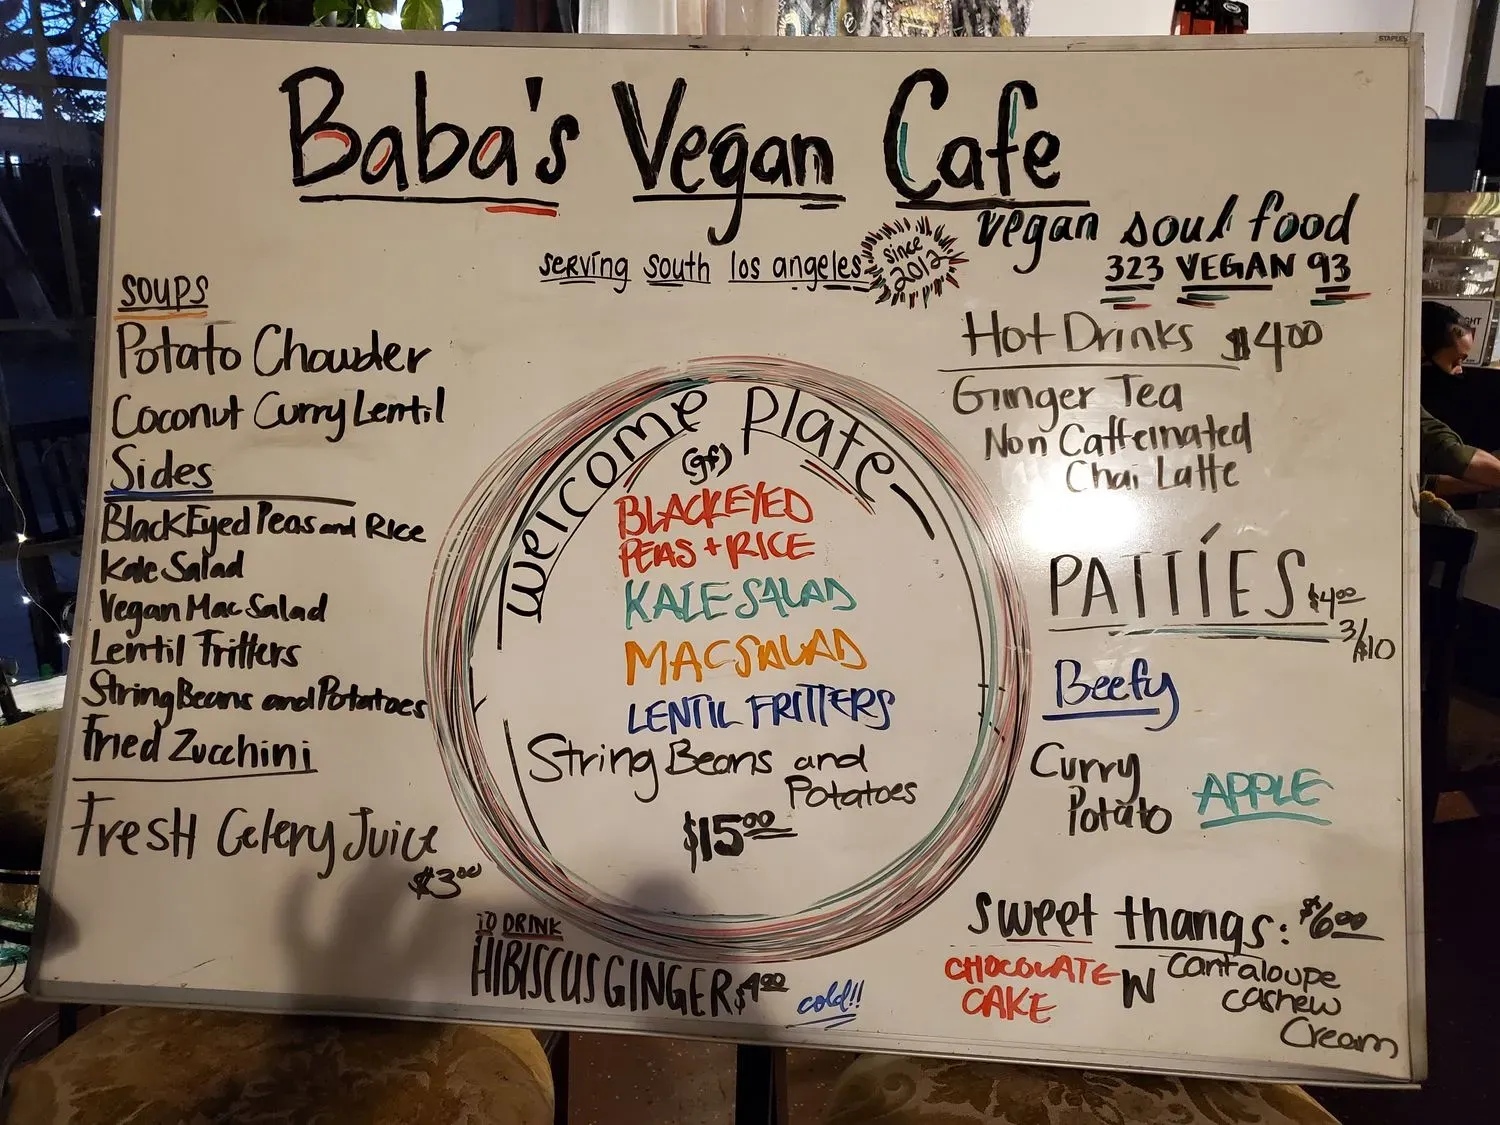 STAPLES
Baba's Vegan Cafe
serving south los angeles
since
2012
vegan soul food
323 VEGAN 93
SOUPS
Potato Chowder
Coconut Curry Lentil
Sides
BlackEyed Peas and Rice
Kale Salad
Vegan Mac Salad
Lentil Fritters
String Beans and Potatoes
Fried Zucchini
Fresh Celery Juice
$3.00
Welcome Plate
(gf)
BLACKEYED
PEAS + RICE
KALE SALAD
MAC SALAD
LENTIL FRITTERS
String Beans and
Potatoes
$15.00
TO DRINK
HIBISCUS GINGER $4.00 cold!!
Hot Drinks $4.00
Ginger Tea
Non Caffeinated
Chai Latte
PATTIES $4.00
3/$10
Beefy
Curry
Potato
APPLE
sweet thangs: $6.00
CHOCOLATE
CAKE
W
Cantaloupe
Cashew
Cream